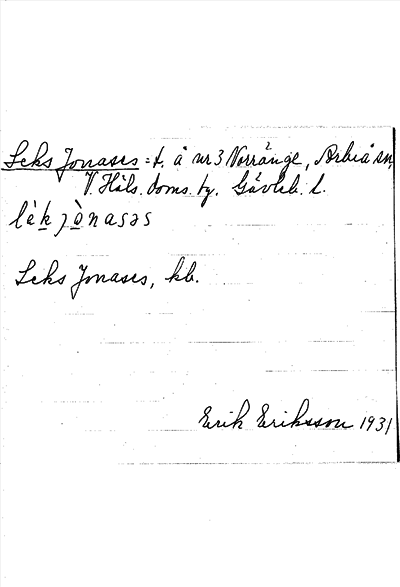 Leks Jonases = t. å nr 3 Norränge, Arbrå sn,
V. Häls. doms. tg. Gävleb. l.
lèk jònasəs
Leks Jonases, kb.
Erik Eriksson 1931